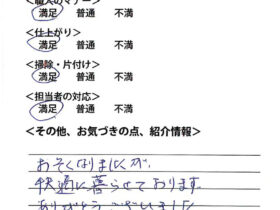 <職人のマナー>
満足 普通 不満
<仕上がり>
満足 普通 不満
<掃除・片付け>
満足 普通 不満
<担当者の対応>
満足 普通 不満
<その他、お気づきの点、紹介情報>
おそくなりましたが、
快適に暮らせております
ありがとうございました